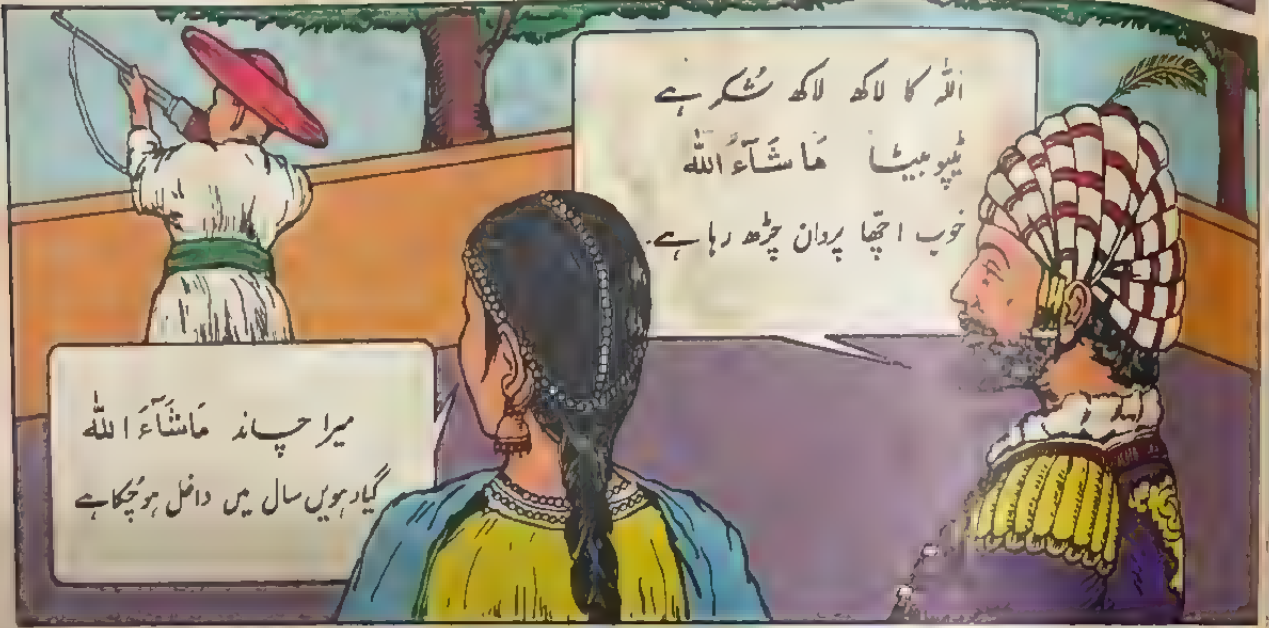 اللہ کا لاکھ لاکھ شکر ہے
ٹیپو بیٹا مَاشَآءَ اللہ
خوب اچھّا پروان چڑھ رہا ہے۔
میرا چاند مَاشَآءَ اللہ
گیارہویں سال میں داخل ہوچُکا ہے